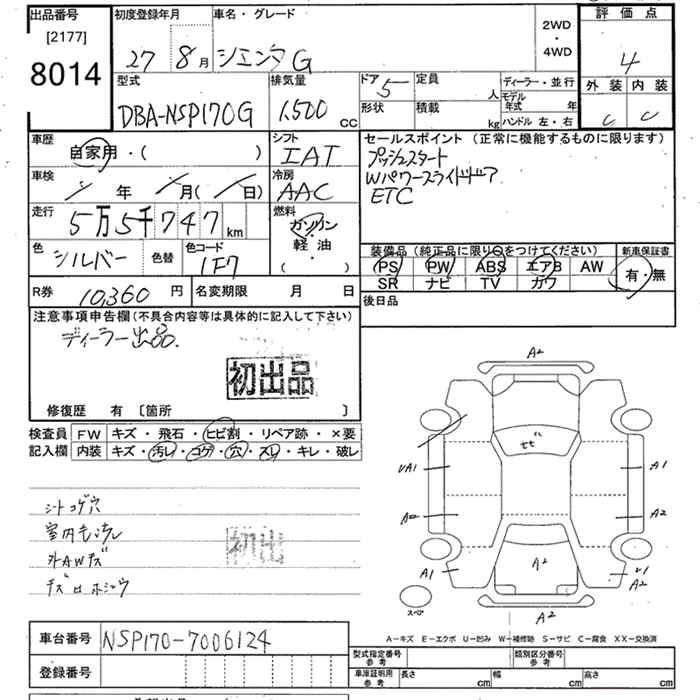 出品番号
[2177]
8014
初度登録年月
27 8月
車名・グレード
シエンタG
2WD
・
4WD
評価点
4
外装 内装
C C
型式
DBA-NSP170G
排気量
1,500 CC
ドア 5
形状
定員 人
積載 kg
ディーラー・並行
モデル年式 年
ハンドル 左・右
車歴
自家用・( )
シフト
IAT
車検
年 月( 日)
冷房
AAC
走行
5万5千747km
燃料
ガソリン
軽油
( )
色
シルバー
色替
色コード
1F7
セールスポイント (正常に機能するものに限ります)
プッシュスタート
Wパワースライドドア
ETC
装備品(純正品に限り○をつけてください)
PS PW ABS エアB AW
SR ナビ TV ガワ
新車保証書
有・無
R券 10,360 円
名変期限 月 日
後日品
注意事項申告欄(不具合内容等は具体的に記入して下さい)
ディーラー出品.
初出品
修復歴 有 [箇所 ]
検査員
記入欄
FW キズ・飛石・ヒビ割・リペア跡・×要
内装 キズ・汚レ・コゲ・穴・スレ・キレ・破レ
シートコゲ穴
外AWキズ
初出
A2
UA1
A1
A2
A2
A1
A2
A2
スペア
A-キズ E-エクボ U-凹み W-補修跡 S-サビ C-腐食 XX-交換済
車台番号 NSP170-7006124
登録番号
型式指定番号
参考
類別区分番号
参考
車庫証明用
参考
長さ cm 幅 cm 高さ cm